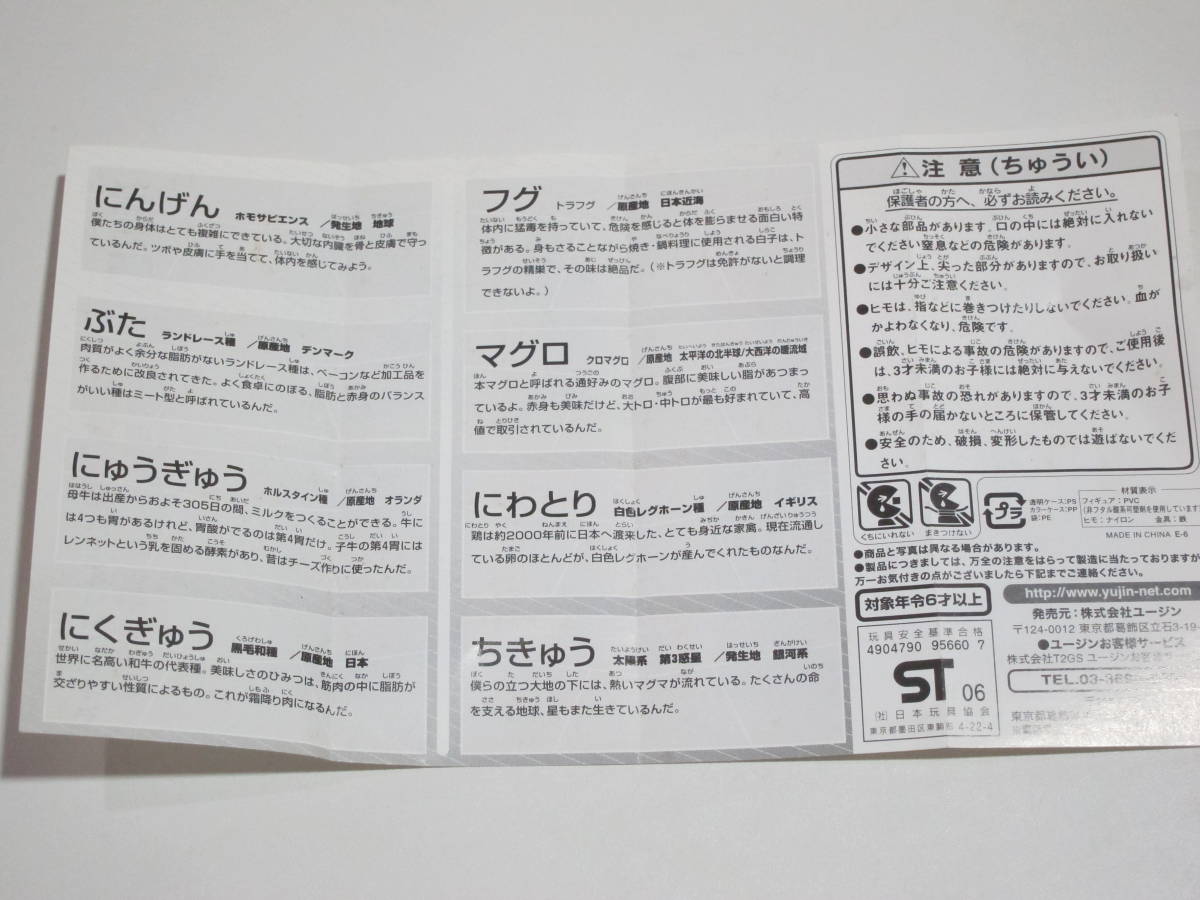 にんげん ホモサピエンス /発生地 地球
僕たちの身体はとても複雑にできている。大切な内臓を骨と皮膚で守っ
ているんだ。ツボや皮膚に手を当てて、体内を感じてみよう。
ぶた ランドレース種 /原産地 デンマーク
肉質がよく余分な脂肪がないランドレース種は、ベーコンなど加工品を
作るために改良されてきた。よく食卓にのぼる、脂肪と赤身のバランス
がいい種はミート型と呼ばれているんだ。
にゅうぎゅう ホルスタイン種 /原産地 オランダ
母牛は出産からおよそ305日の間、ミルクをつくることができる。牛に
は4つも胃があるけれど、胃酸がでるのは第4胃だけ。子牛の第4胃には
レンネットという乳を固める酵素があり、昔はチーズ作りに使ったんだ。
にくぎゅう 黒毛和種 /原産地 日本
世界に名高い和牛の代表種。美味しさのひみつは、筋肉の中に脂肪が
交ざりやすい性質によるもの。これが霜降り肉になるんだ。
フグ トラフグ /原産地 日本近海
体内に猛毒を持っていて、危険を感じると体を膨らませる面白い特
徴がある。身もさることながら焼き・鍋料理に使用される白子は、ト
ラフグの精巣で、その味は絶品だ。(※トラフグは免許がないと調理
できないよ。)
マグロ クロマグロ /原産地 太平洋の北半球/大西洋の暖流域
本マグロと呼ばれる通好みのマグロ。腹部に美味しい脂があつまっ
ているよ。赤身も美味だけど、大トロ・中トロが最も好まれていて、高
値で取引されているんだ。
にわとり 白色レグホーン種 /原産地 イギリス
鶏は約2000年前に日本へ渡来した、とても身近な家禽。現在流通し
ている卵のほとんどが、白色レグホーンが産んでくれたものなんだ。
ちきゅう 太陽系 第3惑星 /発生地 銀河系
僕らの立つ大地の下には、熱いマグマが流れている。たくさんの命
を支える地球、星もまた生きているんだ。
⚠注意(ちゅうい)
保護者の方へ、必ずお読みください。
●小さな部品があります。口の中には絶対に入れない
でください窒息などの危険があります。
●デザイン上、尖った部分がありますので、お取り扱い
には十分ご注意ください。
●ヒモは、指などに巻きつけたりしないでください。血が
かよわなくなり、危険です。
●誤飲、ヒモによる事故の危険がありますので、ご使用後
は、3才未満のお子様には絶対に与えないでください。
●思わぬ事故の恐れがありますので、3才未満のお子
様の手の届かないところに保管してください。
●安全のため、破損、変形したものでは遊ばないでくだ
さい。
くちにいれない まきつけない
プラ
透明ケース:PS
カラーケース:PP
袋:PE
材質表示
フィギュア:PVC
(非フタル酸系可塑剤を使用しています)
ヒモ:ナイロン 金具:鉄
MADE IN CHINA E-6
●商品と写真は異なる場合があります。
●製品につきましては、万全の注意をはらって製造に当たっておりますが
万一お気付きの点がございましたら下記までご連絡ください。
対象年令6才以上
玩具安全基準合格
4904790 95660 7
ST 06
(社)日本玩具協会
東京都墨田区東駒形 4-22-4
http://www.yujin-net.com
発売元:株式会社ユージン
〒124-0012 東京都葛飾区立石3-19-
●ユージンお客様サービス
株式会社T2GS ユージンお客様
TEL.03-369
東京都葛飾